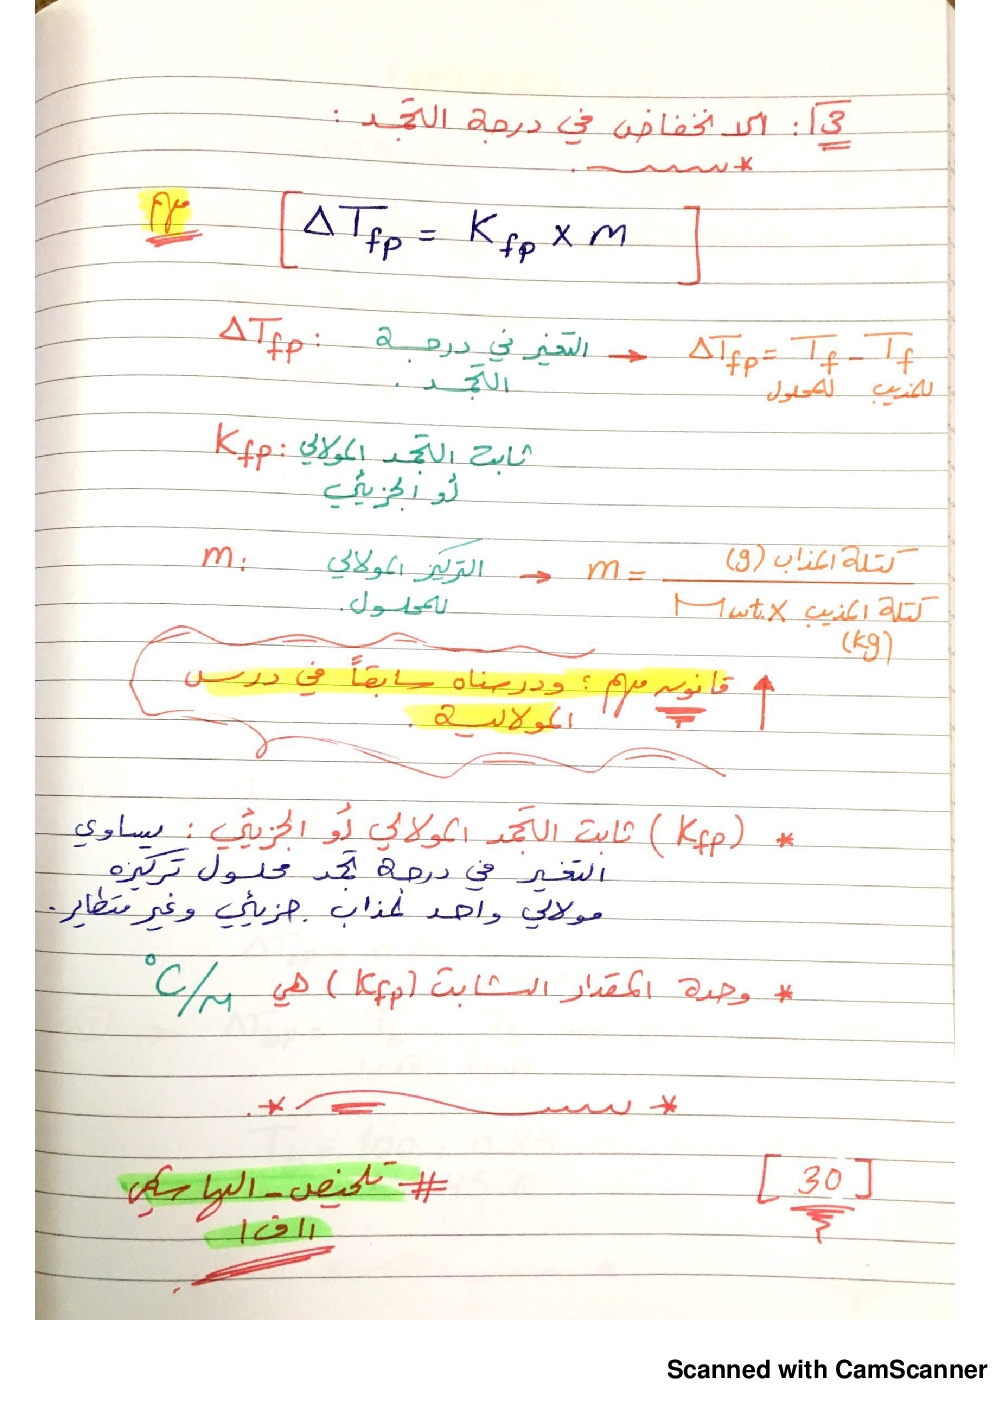 3: الانخفاض في درجة التجمد :
مهم
[ ΔTfp = Kfp × m ]
ΔTfp : التغير في درجة → ΔTfp = Tf – Tf
التجمد . للمحلول للمذيب
Kfp : ثابت التجمد المولالي
أو الجزيئي
m : التركيز المولالي → m = كتلة المذاب (g)
للمحلول. Mwt. × كتلة المذيب
(kg)
قانون مهم ؛ ودرسناه سابقاً في درس
المولالية .
* (Kfp) ثابت التجمد المولالي أو الجزيئي : يساوي
التغير في درجة تجمد محلول تركيزه
مولالي واحد لمذاب جزيئي وغير متطاير.
* وحدة المقدار الثابت (Kfp) هي °C/m
[ 30 ]
# تلخيص - البها
١١ ف ١
Scanned with CamScanner